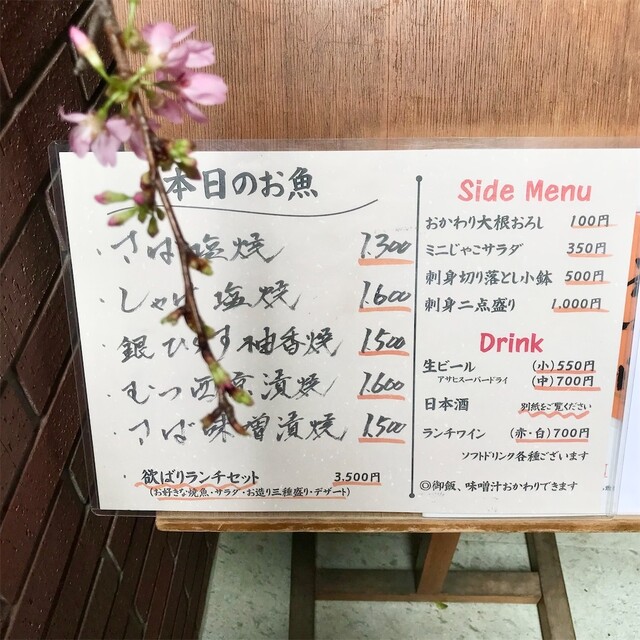 本日のお魚
・さば塩焼 1.300
・しゃけ塩焼 1.600
・銀ひらす柚香焼 1.500
・むつ西京漬焼 1.600
・さば味噌漬焼 1.500
・欲ばりランチセット 3.500円
(お好きな焼魚・サラダ・お造り三種盛り・デザート)
Side Menu
おかわり大根おろし 100円
ミニじゃこサラダ 350円
刺身切り落とし小鉢 500円
刺身二点盛り 1.000円
Drink
生ビール (小)550円
アサヒスーパードライ (中)700円
日本酒 別紙をご覧ください
ランチワイン (赤・白)700円
ソフトドリンク各種ございます
◎御飯、味噌汁おかわりできます